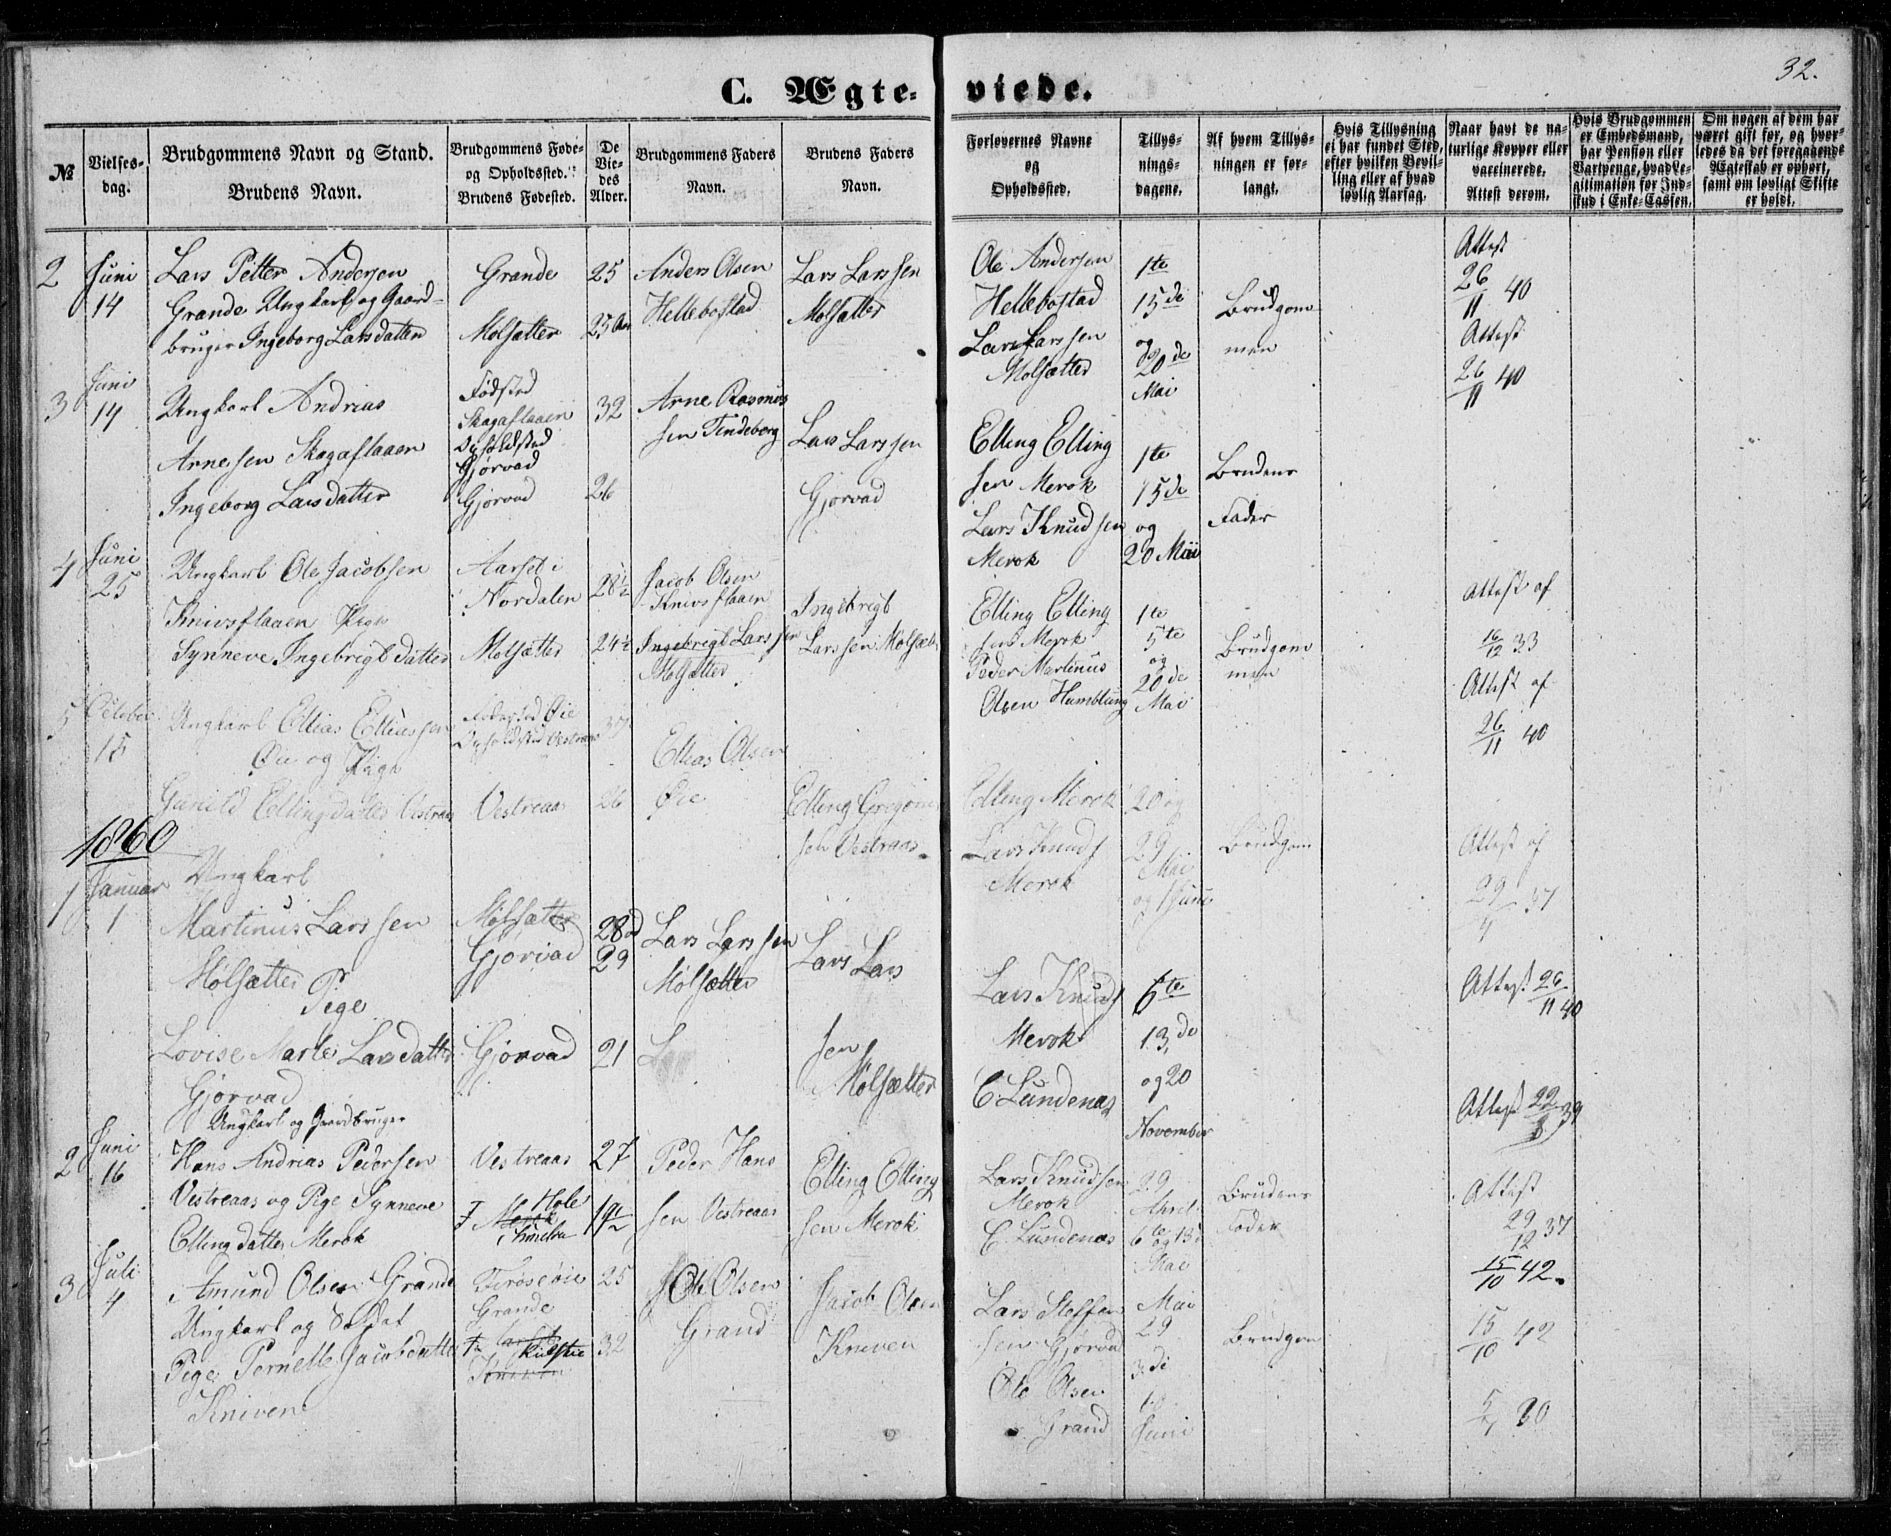 32.
C. Ægte- viede.
№
Vielses-
dag.
Brudgommens Navn og Stand.
Brudens Navn.
Brudgommens Føde-
og Opholdssted.
Brudens Fødested.
De
Vie-
des
Alder.
Brudgommens Faders
Navn.
Brudens Faders
Navn.
Forlovernes Navne
og
Opholdssted.
Tillys-
nings-
dagene.
Af hvem Tillys-
ningen er for-
langt.
Hvis Tillysning
ei har fundet Sted,
efter hvilken Bevil-
ling eller af hvad
lovlig Aarsag.
Naar havt de na-
turlige Kopper eller
vaccinerede.
Attest derom.
Hvis Brudgommen
er Embedsmand,
har Pension eller
Vartpenge, hvad Le-
gitimation for Ind-
skud i Enke-Cassen.
Om nogen af dem har
været gift før, og hvor-
ledes da det foregaaende
Ægteskab er ophørt,
samt om lovligt Skifte
er holdt.
2
Juni
14
Lars Petter Andersen
Grande Ungkarl og Gaard-
bruger Ingeborg Larsdatter
Grande
Molsætter
25
25
Anders Olsen
Hellebostad
Lars Larssen
Molsætter
Ole Andersen
Hellebostad
Lars Larssen
Molsætter
1te
15de
og
20de
Mai
Brudgom
men
Attest
26/11 40
Attest
26/11 40
3
Juni
14
Ungkarl Andrias
Arnessen Skagaflaaen
Ingeborg Larsdatter
Fødsted
Skagaflaaen
Opholdsted
Gjørvad
Gjørvad
32
26
Arne Rasmus
sen Tindeborg
Lars Larssen
Gjørvad
Elling Elling
sen Merok
Lars Knudsen
Merok
1te
15de
og
20 Mai
Brudens
Fader
4
Juni
25
Ungkarl Ole Jacobsen
Knivsflaaen Pige
Synneve Ingebrigtsdatter
Aarset i
Nordalen
Molsætter
28½
24½
Jacob Olsen
Knivsflaaen
Ingebrigt Larssen
Molsætter
Ingebrigt
Larssen Molsæt
Elling Elling
sen Merok
Peder Martinus
Olsen Humblung
1te
5te
og
20de
Mai
Brudgom
men
Attest af
16/12 33
Attest af
26/11 40
5
October
15
Ungkarl Ellias Elliassen
Øie og Pige
Gunild Ellingsdatter Vestraas
Fødested Øie
Opholdsted Vestraas
Vestreaas
37
26
Ellias Olsen
Øie
Elling Gregorius
sen Vestraas
Elling Merok
Lars Knuds
Merok
20 og
29
Mai
og 1 Juni
Brudgom
Attest af
29/4 37
1860
1
Januar
1
Ungkarl
Martinus Larssen
Molsætter
Pige
Lovise Marte Larsdatter
Gjørvad
Molsætter
Gjørvad
Gjørvad
28
29
21
Lars Larssen
Molsætter
Lars Lars
sen
Molsætter
Lars Knuds
Merok
E Lundenæs
6te
13de
og 20
November
Attest 26/11 40
Attest 22/8 39
2
Juni
16
Ungkarl og Gaardbruger
Hans Andrias Pedersen
Vestreaas og Pige Synneve
Ellingsdatter Merok
Vestreaas
Hole
27
19½
Peder Hans
sen Vestreaas
Elling Elling
sen Merok
Lars Knudsen
Merok
E. Lundenæs
29
April
6te og 13
Mai
Brudens
Fader
Attest
29/12 37
15/10 42.
3
Juli
4
Amund Olsen Grande
Ungkarl og Soldat
Pige Pernelle Jacobsdatter
Kniven
Grande
25
32
Ole Olsen
Grand
Jacob Olsen
Kniven
Lars Steffen
sen Gjørvad
Ole Olsen
Grand
Mai
29
3de
10
Juni
Brudgom
15/10 42
30